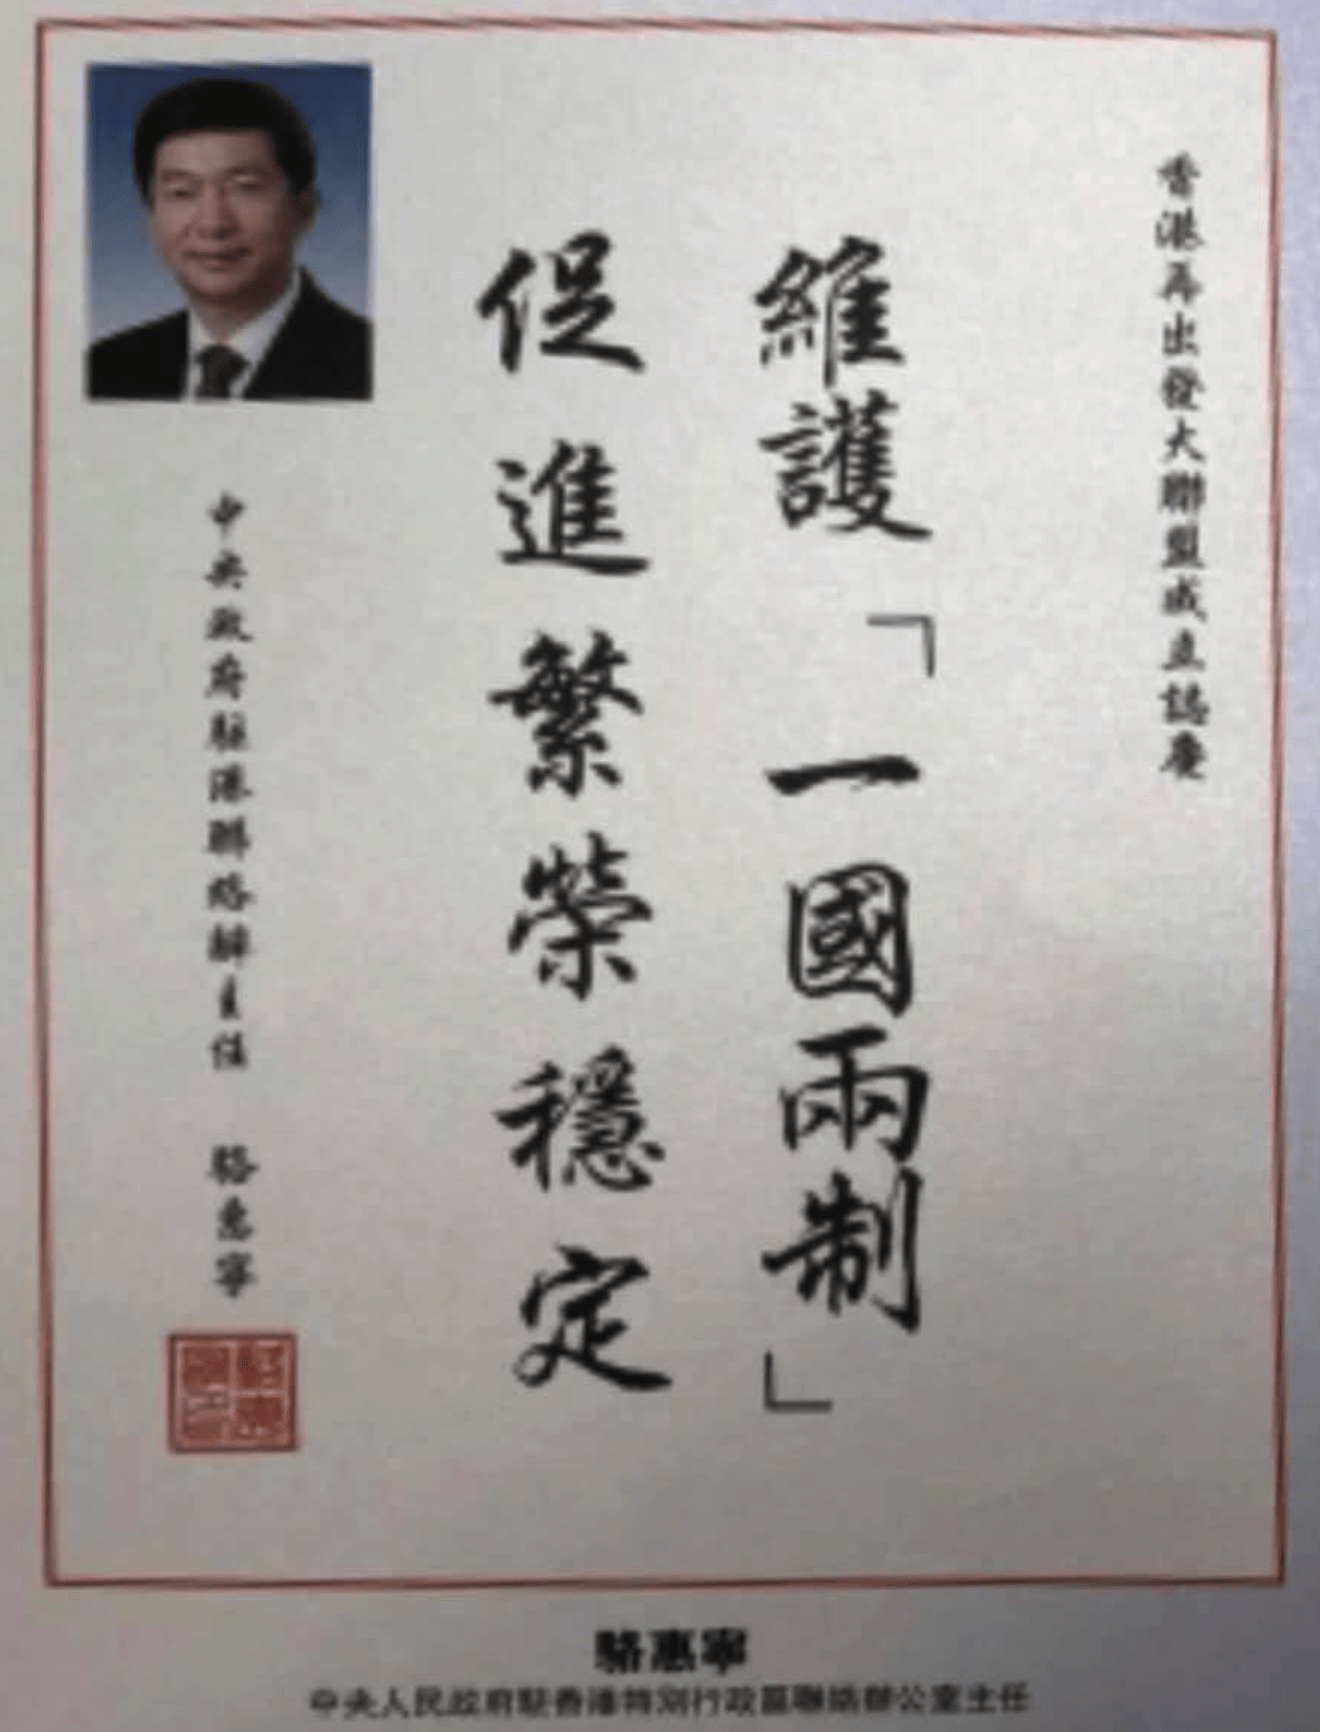 香港再出發大聯盟成立誌慶
維護「一國兩制」
促進繁榮穩定
中央政府駐港聯絡辦主任 駱惠寧
駱惠寧
中央人民政府駐香港特別行政區聯絡辦公室主任